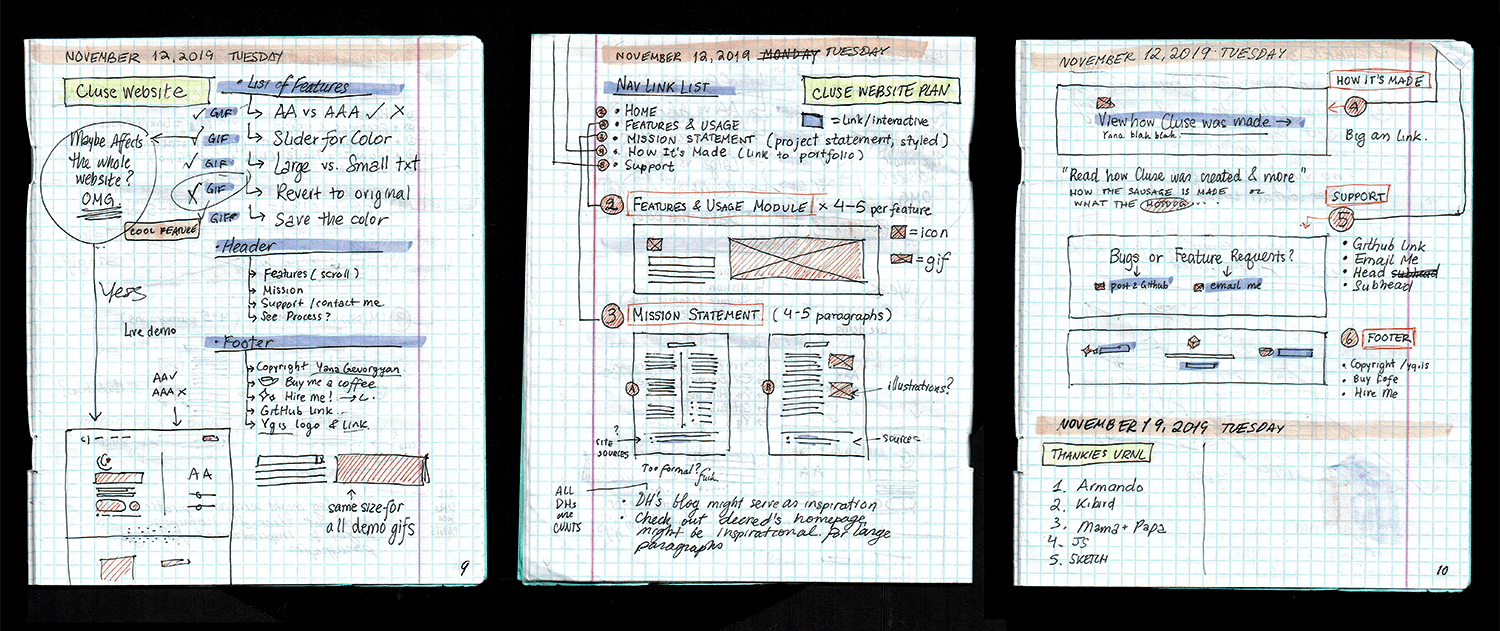 NOVEMBER 12, 2019 TUESDAY
CLUSE WEBSITE
• List of Features
✓ GIF ↳ AA vs AAA ✓ X
✓ GIF ↳ Slider for Color
✓ GIF ↳ Large vs. Small txt
X GIF ↳ Revert to original
GIF ↳ Save the color
Maybe Affects
the whole
website?
OMG.
COOL FEATURE
Yess
Live demo
AA ✓
AAA X
AA
• Header
↳ Features (scroll)
↳ Mission
↳ Support / contact me
↳ See Process?
• Footer
↳ Copyright Yana Gevorgyan
↳ Buy me a coffee
↳ Hire me! →
↳ GitHub link
↳ Yg.is logo & link
same size for
all demo gifs
9
NOVEMBER 12, 2019 MONDAY TUESDAY
NAV LINK LIST
CLUSE WEBSITE PLAN
① • HOME
② • FEATURES & USAGE
③ • MISSION STATEMENT (project statement, styled)
④ • HOW IT'S MADE (link to portfolio)
⑤ • Support
= Link/interactive
② FEATURES & USAGE MODULE × 4-5 per feature
= icon
= gif
③ MISSION STATEMENT (4-5 paragraphs)
A
B
illustrations?
?
CITE
SOURCES
source
Too formal? fuck.
ALL
DHs
are
CUNTS
• DH's blog might serve as inspiration
• Check out decred's homepage,
might be inspirational for large
paragraphs
NOVEMBER 12, 2019 • TUESDAY
HOW IT'S MADE
④
View how Cluse was made →
Yana blah blah
Big an link.
"Read how Cluse was created & more"
HOW THE SAUSAGE IS MADE OR
WHAT THE HOTDOG...
SUPPORT
⑤
Bugs or Feature Requests?
post 2 Github
email me
• Github link
• Email Me
• Head subhead
• Subhead
⑥ FOOTER
• Copyright / yg.is
• Buy Cofe
• Hire Me
NOVEMBER 19, 2019 TUESDAY
THANKIES URNL
1. Armando
2. Kibird
3. Mama + Papa
4. JS
5. SKETCH
10